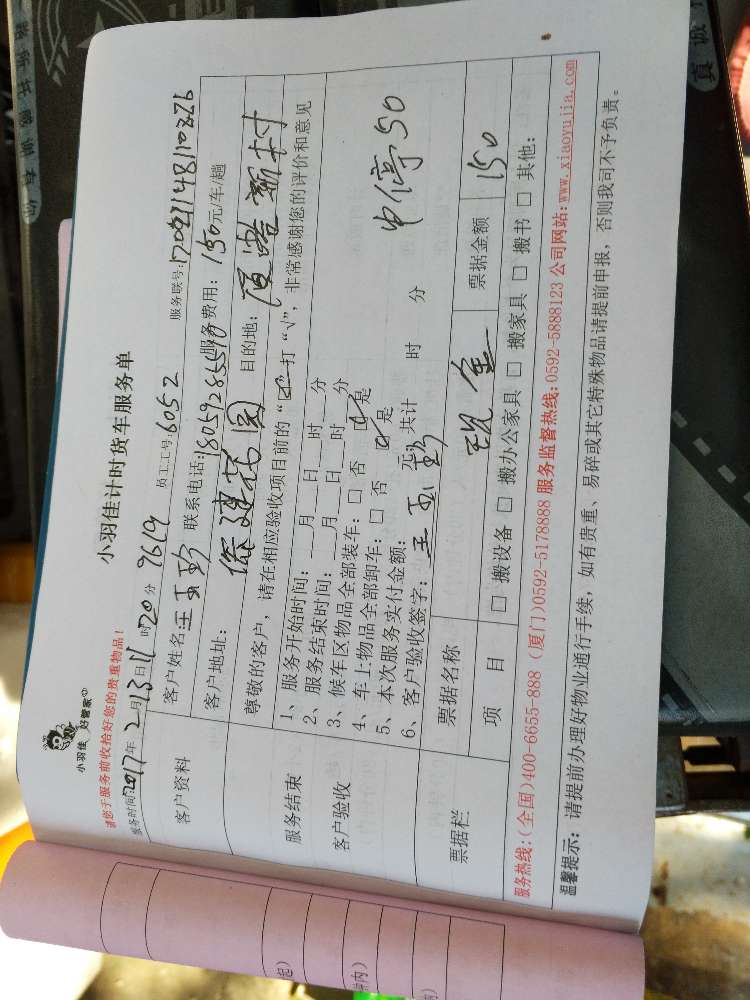 小羽佳 好管家
小羽佳计时货车服务单
请您于服务前收拾好您的贵重物品！
服务时间:2017年2月13日11时20分 9619 员工工号:6052 服务联号:
客户资料
客户姓名:王玉珍 联系电话: 服务费用：150元/车/趟
客户地址： 目的地：
尊敬的客户，请在相应验收项目前的“☑”打“√”，非常感谢您的评价和意见
服务结束
客户验收
1、服务开始时间：___月___日___时___分
2、服务结束时间：___月___日___时___分
3、候车区物品全部装车：□ 否 ☑ 是
4、车上物品全部卸车：□ 否 ☑ 是
5、本次服务实付金额： 元，共计 时 分
6、客户验收签字：王玉珍
中停50
票据栏
票据名称 现金 票据金额 150
项 目 □ 搬设备 □ 搬办公家具 □ 搬家具 □ 搬书 □ 其他：
服务热线：(全国)400-6655-888 (厦门)0592-5178888 服务监督热线:0592-5888123 公司网站:www.xiaoyujia.com
温馨提示：请提前办理好物业通行手续，如有贵重、易碎或其它特殊物品请提前申报，否则我司不予负责。
真诚